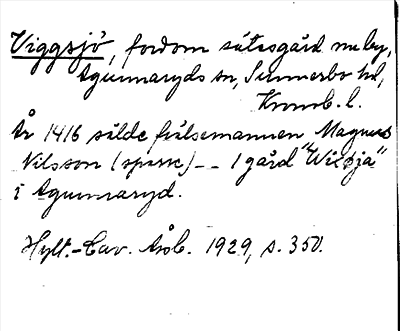 Viggsjö, fordom sätesgård m. by,
Agunnaryds sn, Sunnerbo hd,
Kronob. l.
År 1416 sålde frälsemannen Magnus
Nilsson (sparre) -- 1 gård "Wicsja"
i Agunnaryd.
Hylt.-Cav. Årsb. 1929, s. 350.